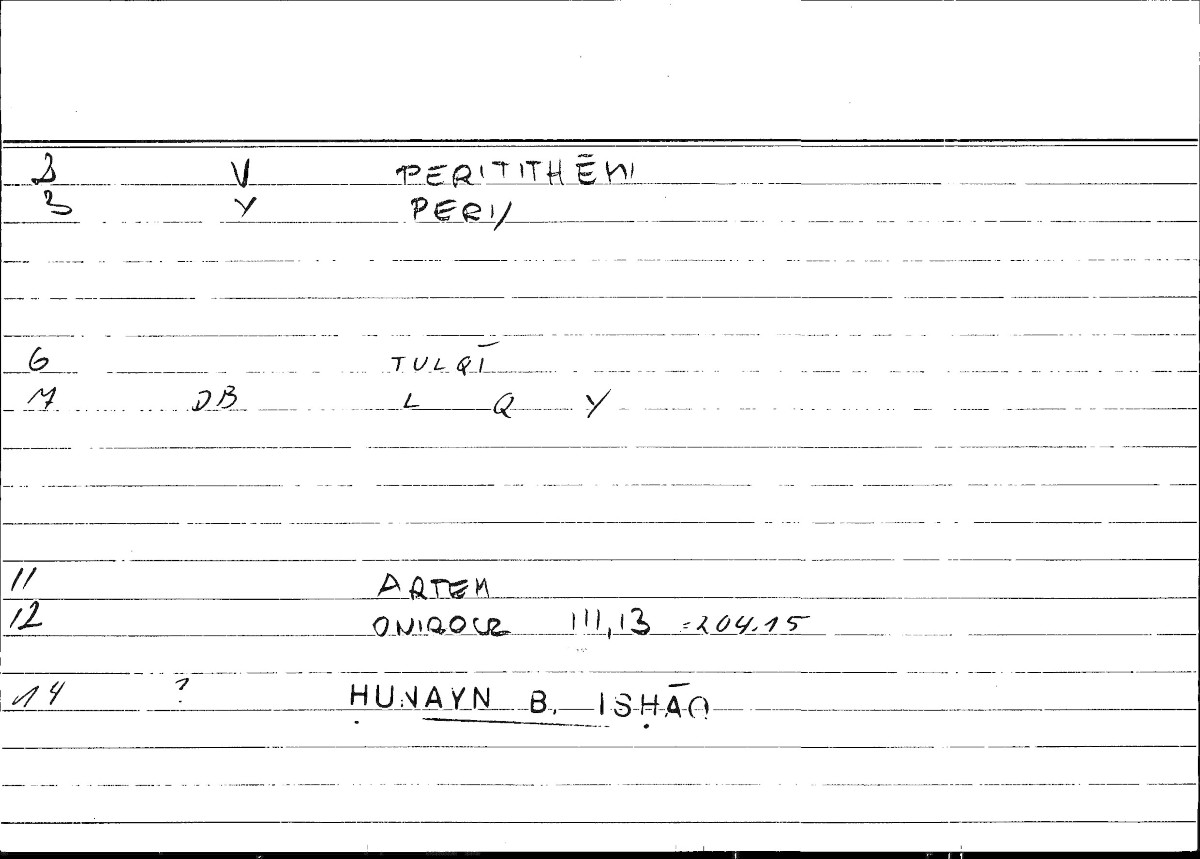 2 V PERITITHĒNI
3 Y PERI/
6 TULQĪ
7 DB L Q Y
11 ARTEM
12 ONIROCR III,13 =204.15
14 ? ḤUNAYN B. ISḤĀQ